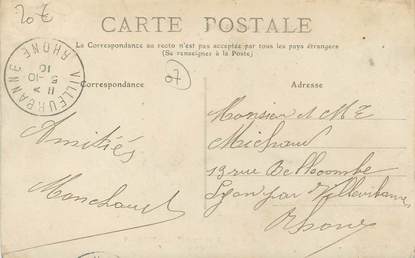 20€
CARTE POSTALE
La Correspondance au recto n'est pas acceptée par tous les pays étrangers
(Se renseigner à la Poste)
VILLEURBANNE RHONE
11
5 -10
10
07
Correspondance
Adresse
Amitiés
Monsieur et Me
Michaud
13 rue Bellecombe
Lyon par Villeurbanne
Rhone